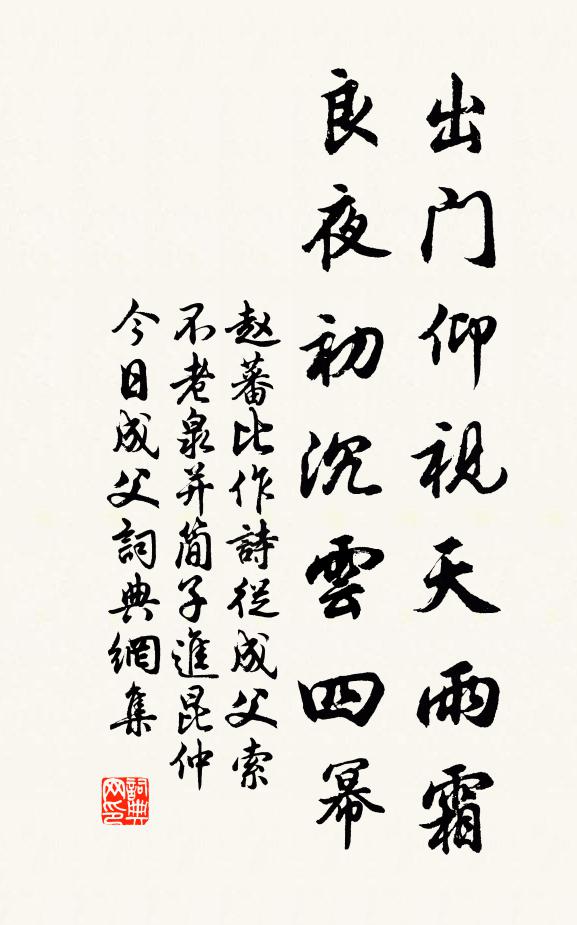 出门仰視天雨霜
良夜初沉雲四幂
赵蕃比作詩從成父索
不老泉并简子進昆仲
今日成父詞典網集
詞典网印